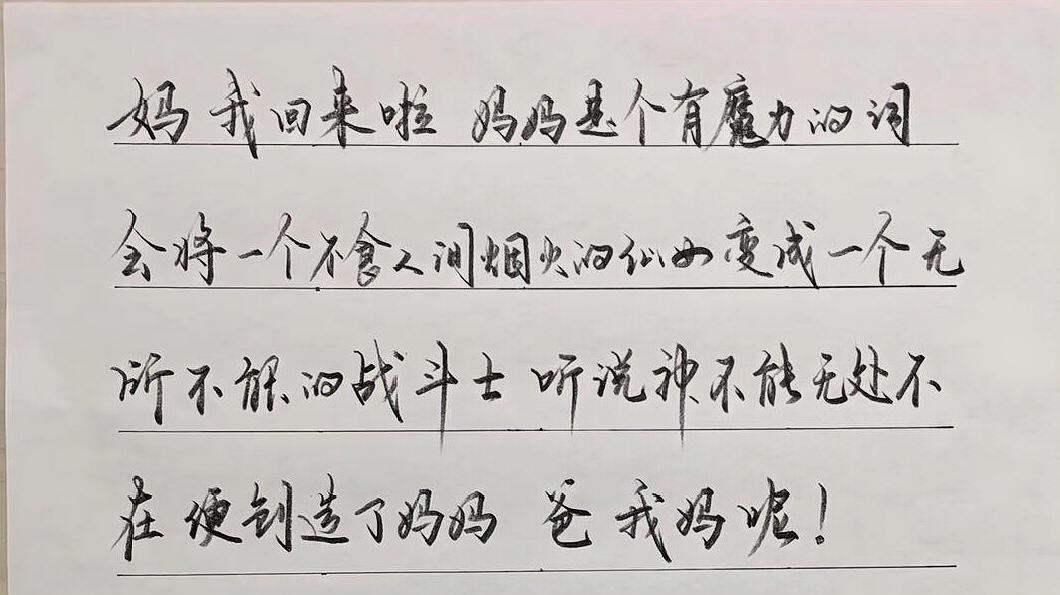 妈 我回来啦 妈妈是个有魔力的词
会将一个不食人间烟火的仙女变成一个无
所不能的战斗士 听说神不能无处不
在 便创造了妈妈 爸 我妈呢！